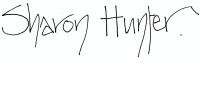 Sharon Hunter.